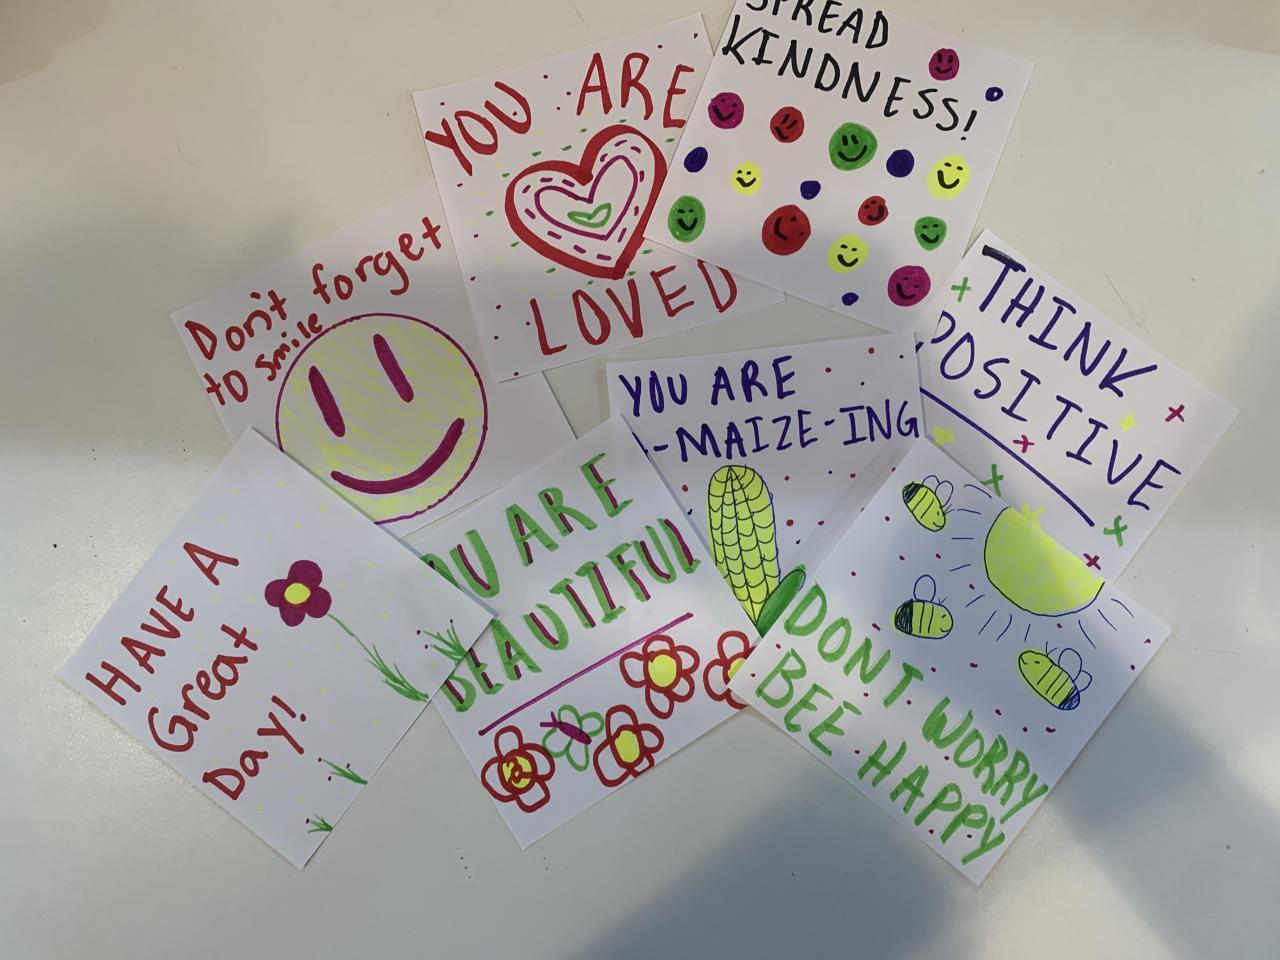 SPREAD
KINDNESS!
YOU ARE
LOVED
Don't forget
to smile
THINK
POSITIVE
YOU ARE
-MAIZE-ING
HAVE A
Great
Day!
OU ARE
BEAUTIFUL
DON'T WORRY
BEE HAPPY